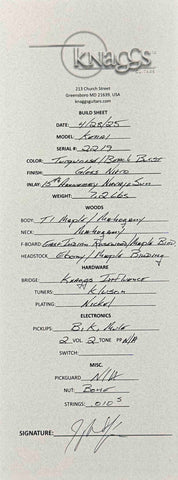 KNAGGS
GUITARS
213 Church Street
Greensboro MD 21639, USA
knaggsguitars.com
BUILD SHEET
DATE: 4/28/25
MODEL: Kenai
SERIAL #: 2219
COLOR: Turquoise/Bomb Burst
FINISH: Gloss Nitro
INLAY: 15th Anniversary Navajo Sun
WEIGHT: 7.2 LBS
WOODS
BODY: T1 Maple/Mahogany
NECK: Mahogany
F-BOARD East Indian Rosewood/Maple Bind
HEADSTOCK Ebony/Maple Binding
HARDWARE
BRIDGE: Knaggs Influence
TUNERS: Kluson
PLATING Nickel
ELECTRONICS
PICKUPS: B.K. Mule
2 VOL 2 TONE PP N/A
SWITCH:
MISC.
PICKGUARD N/A
NUT: Bone
STRINGS: .010s
SIGNATURE: